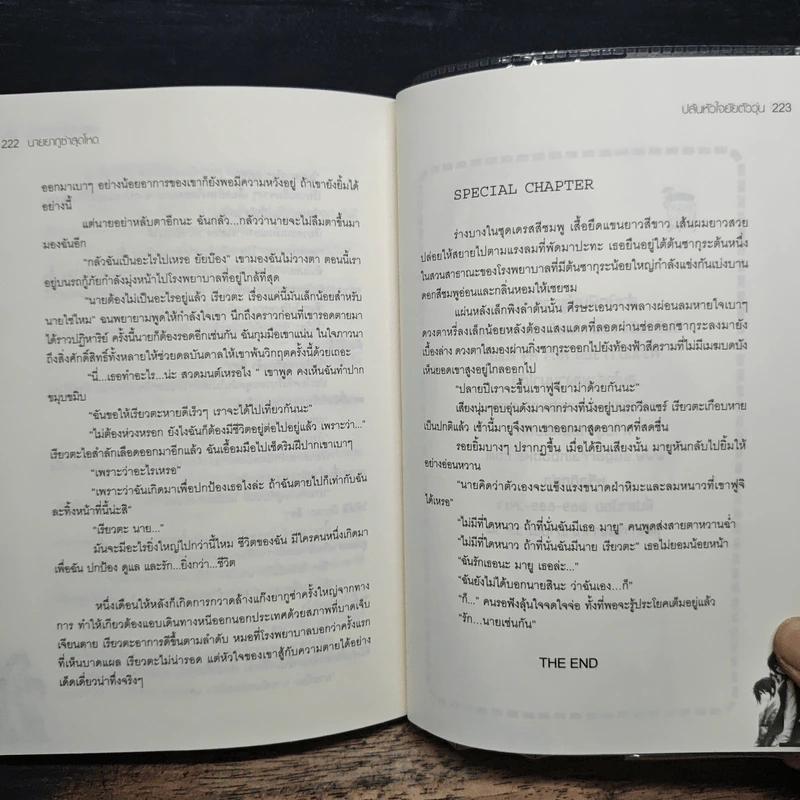 222 นายยากูซ่าสุดโหด
ออกมาเบาๆ อย่างน้อยอาการของเขาก็ยังพอมีความหวังอยู่ ถ้าเขายังยิ้มได้
อย่างนี้
แต่นายอย่าหลับตาอีกนะ ฉันกลัว...กลัวว่านายจะไม่ลืมตาขึ้นมา
มองฉันอีก
“กลัวฉันเป็นอะไรไปเหรอ ยัยบ๊อง” เขามองฉันไม่วางตา ตอนนี้เรา
อยู่บนรถกู้ภัยกำลังมุ่งหน้าไปโรงพยาบาลที่อยู่ใกล้ที่สุด
“นายต้องไม่เป็นอะไรอยู่แล้ว เรียวตะ เรื่องแค่นี้มันเล็กน้อยสำหรับ
นายใช่ไหม” ฉันพยายามพูดให้กำลังใจเขา นึกถึงคราวก่อนที่เขารอดตายมา
ได้ราวปาฏิหาริย์ ครั้งนี้นายก็ต้องรอดอีกเช่นกัน ฉันกุมมือเขาแน่น ในใจภาวนา
ถึงสิ่งศักดิ์สิทธิ์ทั้งหลายให้ช่วยดลบันดาลให้เขาพ้นวิกฤตครั้งนี้ด้วยเถอะ
“นี่...เธอทำอะไร...น่ะ สวดมนต์เหรอไง” เขาพูด คงเห็นฉันทำปาก
ขมุบขมิบ
“ฉันขอให้เรียวตะหายดีเร็วๆ เราจะได้ไปเที่ยวกันนะ”
“ไม่ต้องห่วงหรอก ยังไงฉันก็ต้องมีชีวิตอยู่ต่อไปอยู่แล้ว เพราะว่า...”
เรียวตะไอสำลักเลือดออกมาอีกแล้ว ฉันเอื้อมมือไปเช็ดริมฝีปากเขาเบาๆ
“เพราะว่าอะไรเหรอ”
“เพราะว่าฉันเกิดมาเพื่อปกป้องเธอไงล่ะ ถ้าฉันตายไปก็เท่ากับฉัน
ละทิ้งหน้าที่นี้น่ะสิ”
“เรียวตะ นาย...”
มันจะมีอะไรยิ่งใหญ่ไปกว่านี้ไหม ชีวิตของฉัน มีใครคนหนึ่งเกิดมา
เพื่อฉัน ปกป้อง ดูแล และรัก...ยิ่งกว่า...ชีวิต
หนึ่งเดือนให้หลังก็เกิดการกวาดล้างแก๊งยากูซ่าครั้งใหญ่จากทาง
การ ทำให้เกียวต้องแอบเดินทางหนีออกนอกประเทศด้วยสภาพที่บาดเจ็บ
เจียนตาย เรียวตะอาการดีขึ้นตามลำดับ หมอที่โรงพยาบาลบอกว่าครั้งแรก
ที่เห็นบาดแผล เรียวตะไม่น่ารอด แต่หัวใจของเขาสู้กับความตายได้อย่าง
เด็ดเดี่ยวน่าทึ่งจริงๆ
ปล้นหัวใจยัยตัววุ่น 223
SPECIAL CHAPTER
ร่างบางในชุดเดรสสีชมพู เสื้อยืดแขนยาวสีขาว เส้นผมยาวสวย
ปล่อยให้สยายไปตามแรงลมที่พัดมาปะทะ เธอยืนอยู่ใต้ต้นซากุระต้นหนึ่ง
ในสวนสาธารณะของโรงพยาบาลที่มีต้นซากุระน้อยใหญ่กำลังแข่งกันเบ่งบาน
ดอกสีชมพูอ่อนและกลิ่นหอมให้เชยชม
แผ่นหลังเล็กพิงลำต้นนั้น ศีรษะเอนวางพลางผ่อนลมหายใจเบาๆ
ดวงตาหรี่ลงเล็กน้อยหลังต้องแสงแดดที่ลอดผ่านช่อดอกซากุระลงมายัง
เบื้องล่าง ดวงตาใสมองผ่านกิ่งซากุระออกไปยังท้องฟ้าสีครามที่ไม่มีเมฆบดบัง
เห็นยอดเขาสูงอยู่ไกลออกไป
“ปลายปีเราจะขึ้นเขาฟูจิยาม่าด้วยกันนะ”
เสียงนุ่มๆอบอุ่นดังมาจากร่างที่นั่งอยู่บนรถวีลแชร์ เรียวตะเกือบหาย
เป็นปกติแล้ว เช้านี้มายูจึงพาเขาออกมาสูดอากาศที่สดชื่น
รอยยิ้มบางๆ ปรากฏขึ้น เมื่อได้ยินเสียงนั้น มายูหันกลับไปยิ้มให้
อย่างอ่อนหวาน
“นายคิดว่าตัวเองจะแข็งแรงขนาดฝ่าหิมะและลมหนาวที่เขาฟูจิ
ได้เหรอ”
“ไม่มีที่ใดหนาว ถ้าที่นั่นฉันมีเธอ มายู” คนพูดส่งสายตาหวานฉ่ำ
“ไม่มีที่ใดหนาว ถ้าที่นั่นฉันมีนาย เรียวตะ” เธอไม่ยอมน้อยหน้า
“ฉันรักเธอนะ มายู เธอล่ะ...”
“ฉันยังไม่ได้บอกนายสินะ ว่าฉันเอง...ก็”
“ก็...” คนรอฟังลุ้นใจจดใจจ่อ ทั้งที่พอจะรู้ประโยคเต็มอยู่แล้ว
“รัก...นายเช่นกัน”
THE END